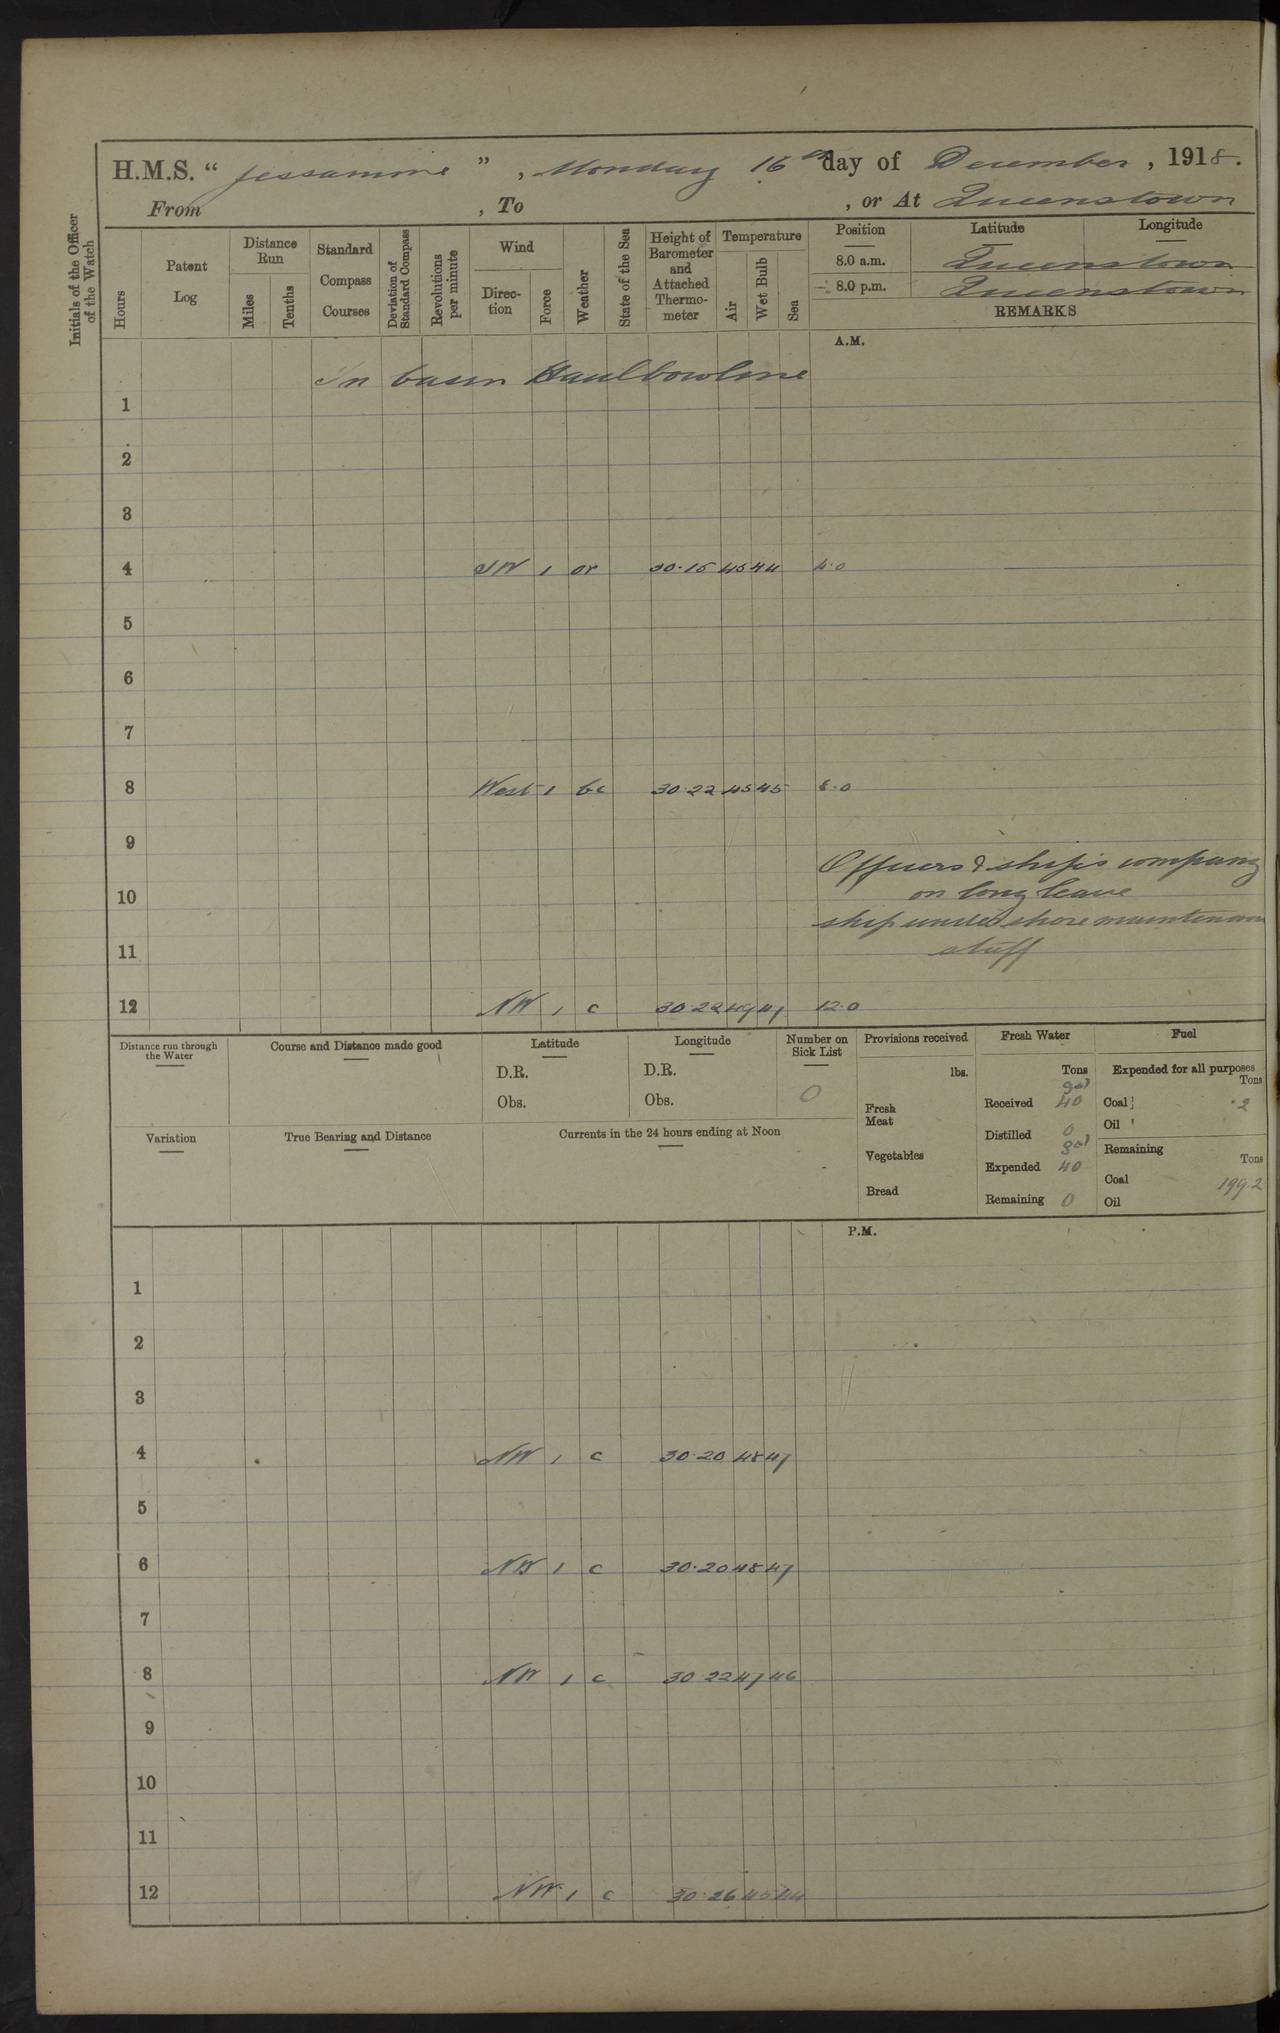 H.M.S. “ Jessamine ” , Monday 16th day of December , 1918.
From , To , or At Queenstown
Initials of the Officer of the Watch
Hours
Patent Log
Distance Run
Miles
Tenths
Standard Compass Courses
Deviation of Standard Compass
Revolutions per minute
Wind
Direc-tion
Force
Weather
State of the Sea
Height of Barometer and Attached Thermo-meter
Temperature
Air
Wet Bulb
Sea
Position Latitude Longitude
8.0 a.m. Queenstown
8.0 p.m. Queenstown
REMARKS
A.M.
In basin Haulbowline
1
2
3
4 SW 1 or 30.15 45 44 4.0
5
6
7
8 West 1 bc 30.22 45 45 8.0
9
Officers & ship's company
10 on long leave
ship under shore maintenance
11 staff
12 NW 1 c 30.22 49 47 12.0
Distance run through the Water
Course and Distance made good
Latitude
D.R.
Obs.
Longitude
D.R.
Obs.
Number on Sick List
0
Provisions received
lbs.
Fresh Meat
Vegetables
Bread
Fresh Water
Tons
gal
Received 40
Distilled 0
gal
Expended 40
Remaining 0
Fuel
Expended for all purposes
Tons
Coal .2
Oil
Remaining
Tons
Coal 199.2
Oil
Variation
True Bearing and Distance
Currents in the 24 hours ending at Noon
P.M.
1
2
3
4 NW 1 c 30.20 48 47
5
6 NW 1 c 30.20 48 47
7
8 NW 1 c 30.22 47 46
9
10
11
12 NW 1 c 30.26 45 44